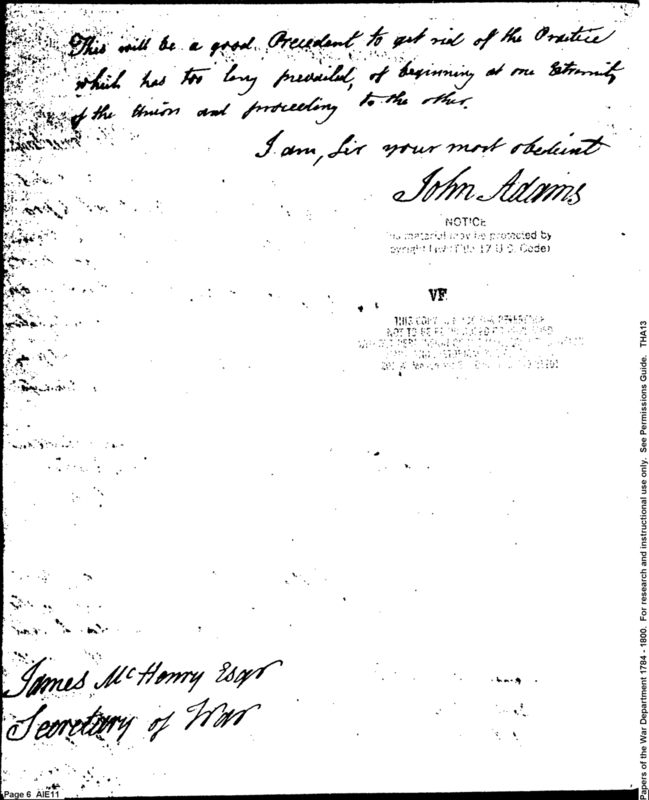 This will be a good Precedent to get rid of the Practice
which has too long prevailed, of beginning at one Extremity
of the Union and proceeding to the other.
I am, Sir your most obedient
John Adams
NOTICE
material may be protected by
law (Title 17 U.S. Code)
VF
NOT TO BE
James McHenry Esqr
Secretary of War
Page 6 AIE11
Papers of the War Department 1784 - 1800. For research and instructional use only. See Permissions Guide. THA13